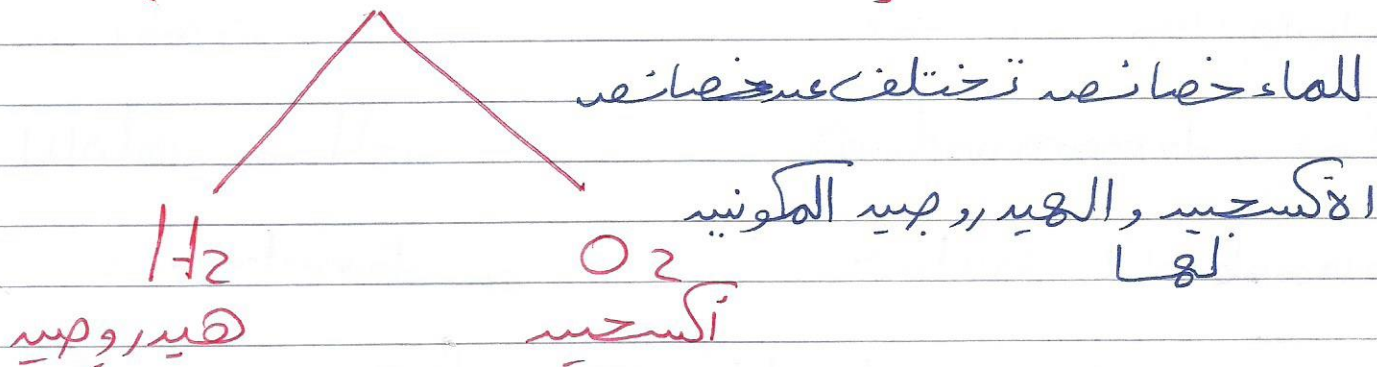 للماء خصائص تختلف عن خصائص
الأكسجين والهيدروجين المكونين
لها
H2 O2
هيدروجين أكسجين